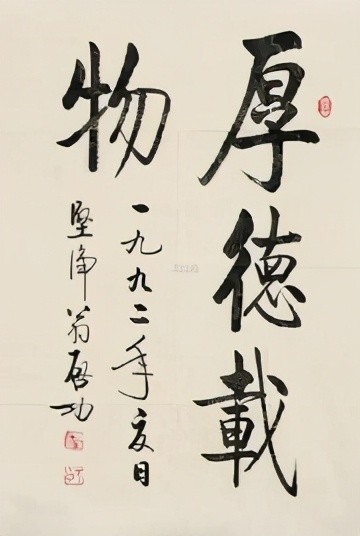 厚德載
物
一九九二年夏日
堅淨翁啓功